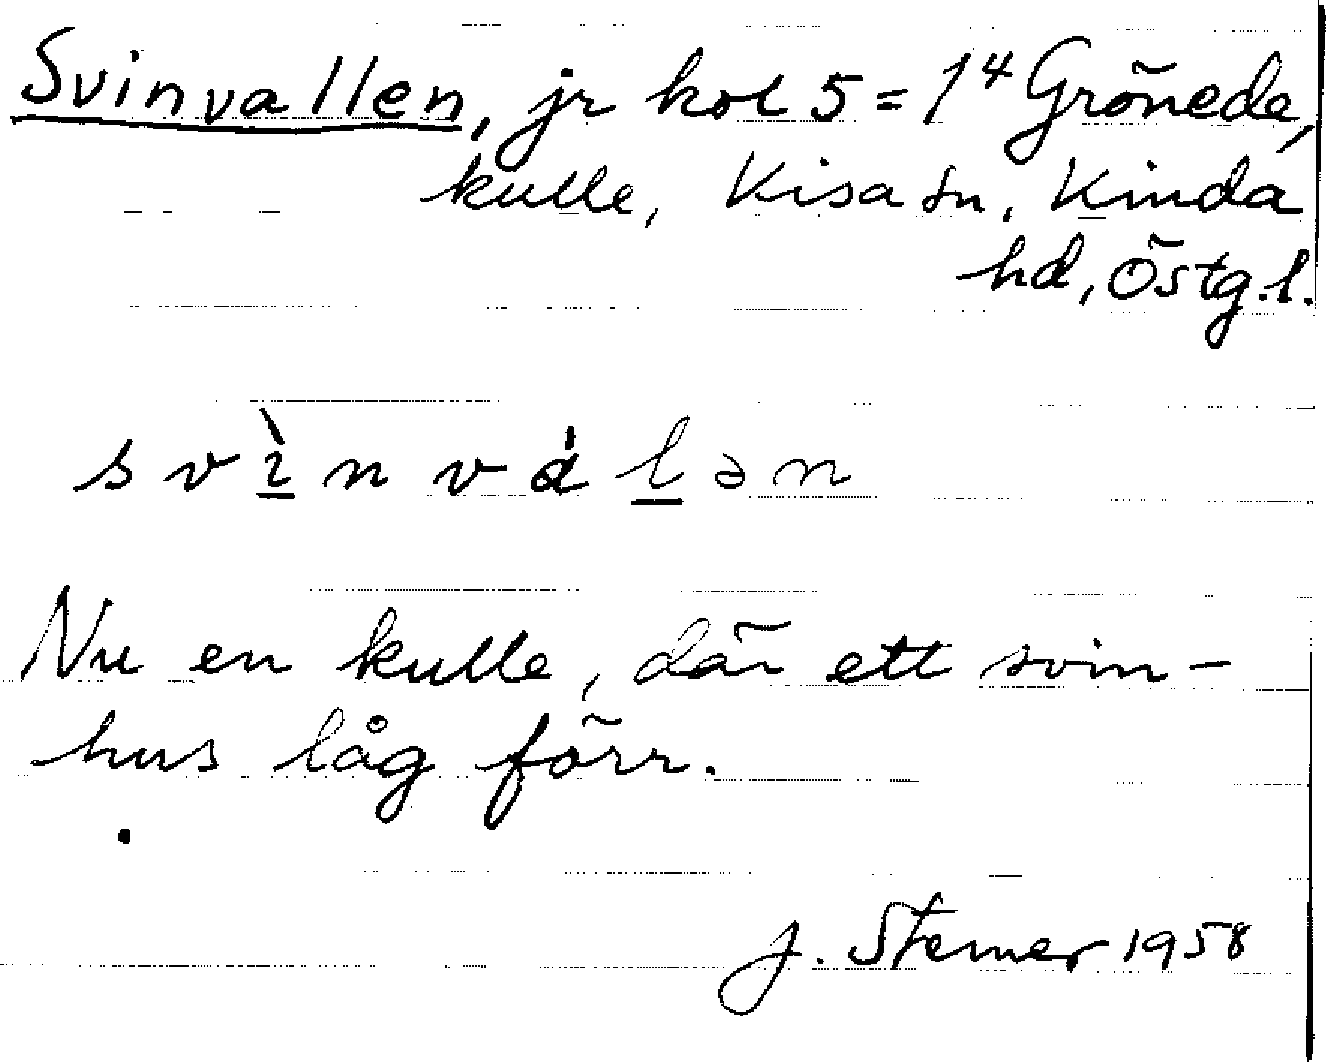 Svinvallen, jr kol 5 = 1⁴ Grönede,
kulle, Kisa sn, Kinda
hd, Östg.l.
s v ì n v á l ə n
Nu en kulle, där ett svin-
hus låg förr.
J. Sterner 1958